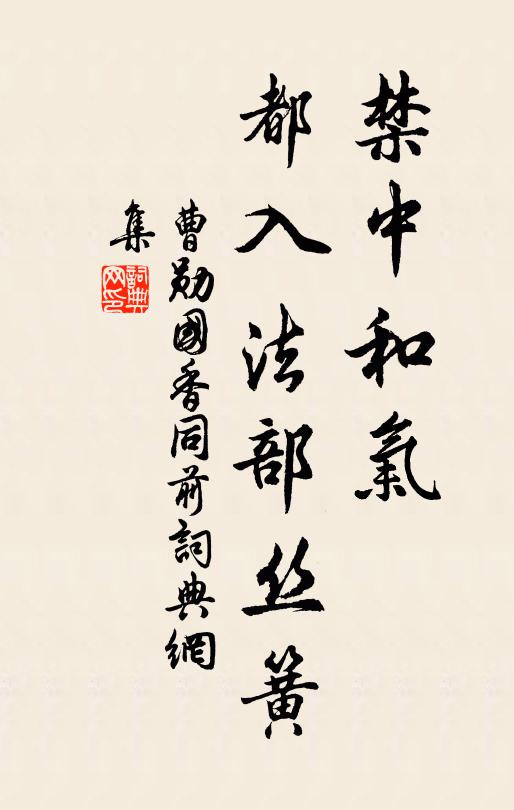 禁中和氣
都入法部丝簧
曹勛國香同前詞典網
集
詞典網印